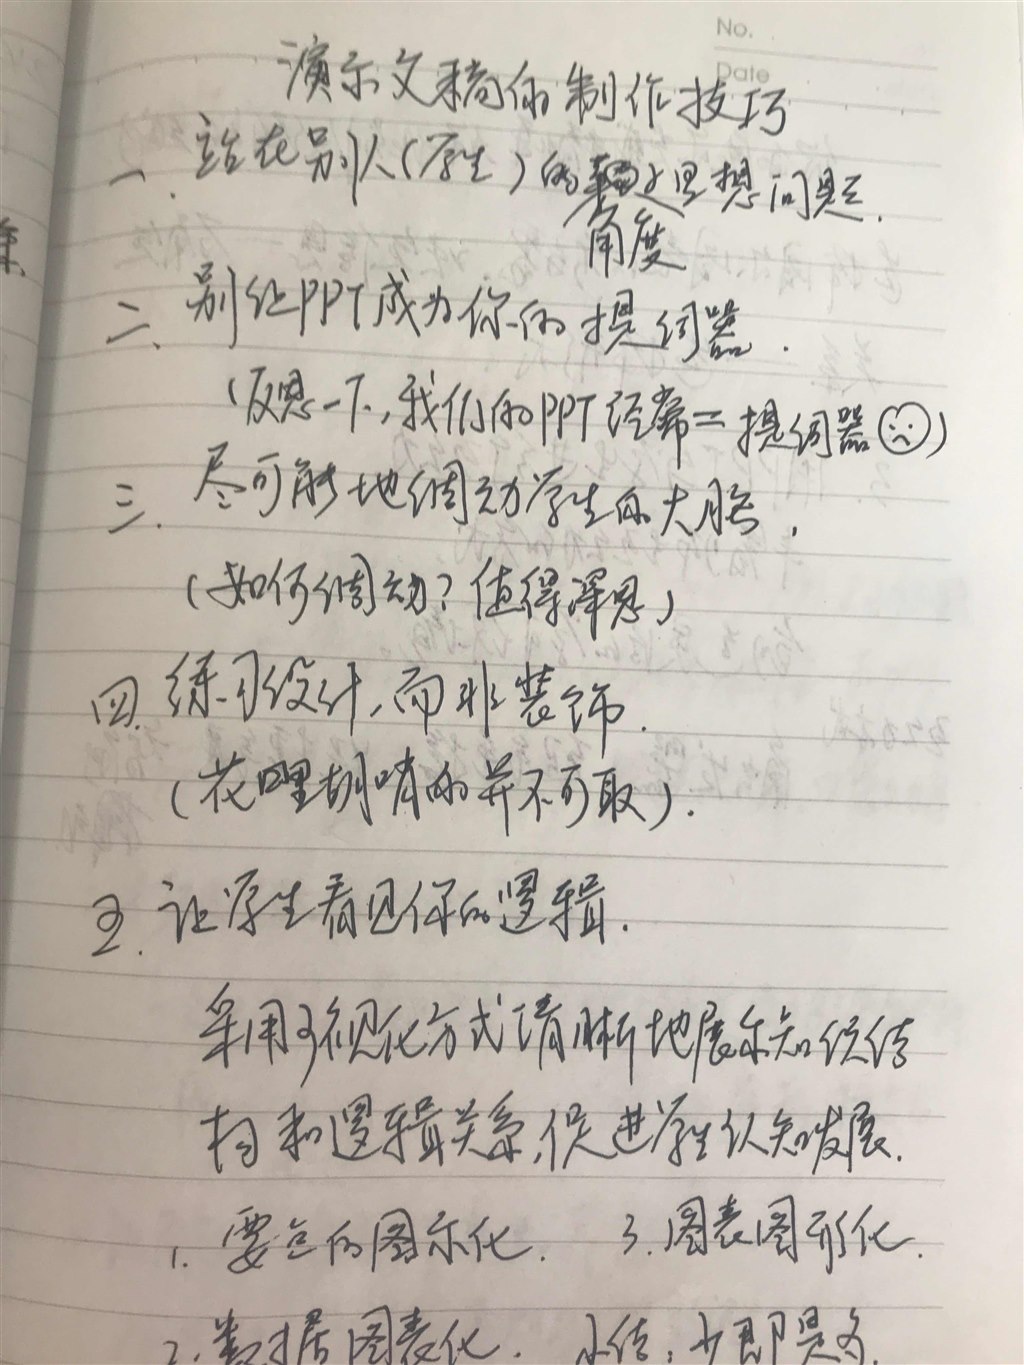 No.
Date
演示文稿的制作技巧
一. 站在别人(学生)的思想问题.
角度
二、别让PPT成为你的提词器.
(反思一下,我们的PPT经常=提词器☹)
三. 尽可能地调动学生的大脑,
(如何调动?值得深思)
四. 练习设计,而非装饰.
(花哩胡哨的并不可取).
五. 让学生看见你的逻辑.
采用可视化方式清晰地展示知识结
构和逻辑关系,促进学生认知发展.
1. 要点的图示化. 3. 图表图形化.
2. 数据图表化. 小结:少即是多